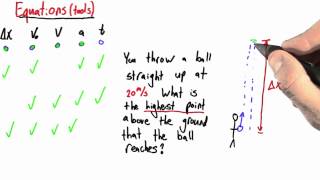 Equations (tools)
Δx V₀ V a t
✓ ✓ ✓ ✓
✓ ✓ ✓ ✓
✓ ✓ ✓ ✓
You throw a ball
straight up at
20 m/s what is
the highest point
above the ground
that the ball
reaches?
Δx